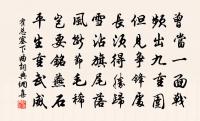 曾當一面戰
頻出九重圍
但見爭鋒處
長須得勝歸
雪沾旗尾落
風斷節毛稀
豈要銘燕石
平生重武威
塞下曲詞典網